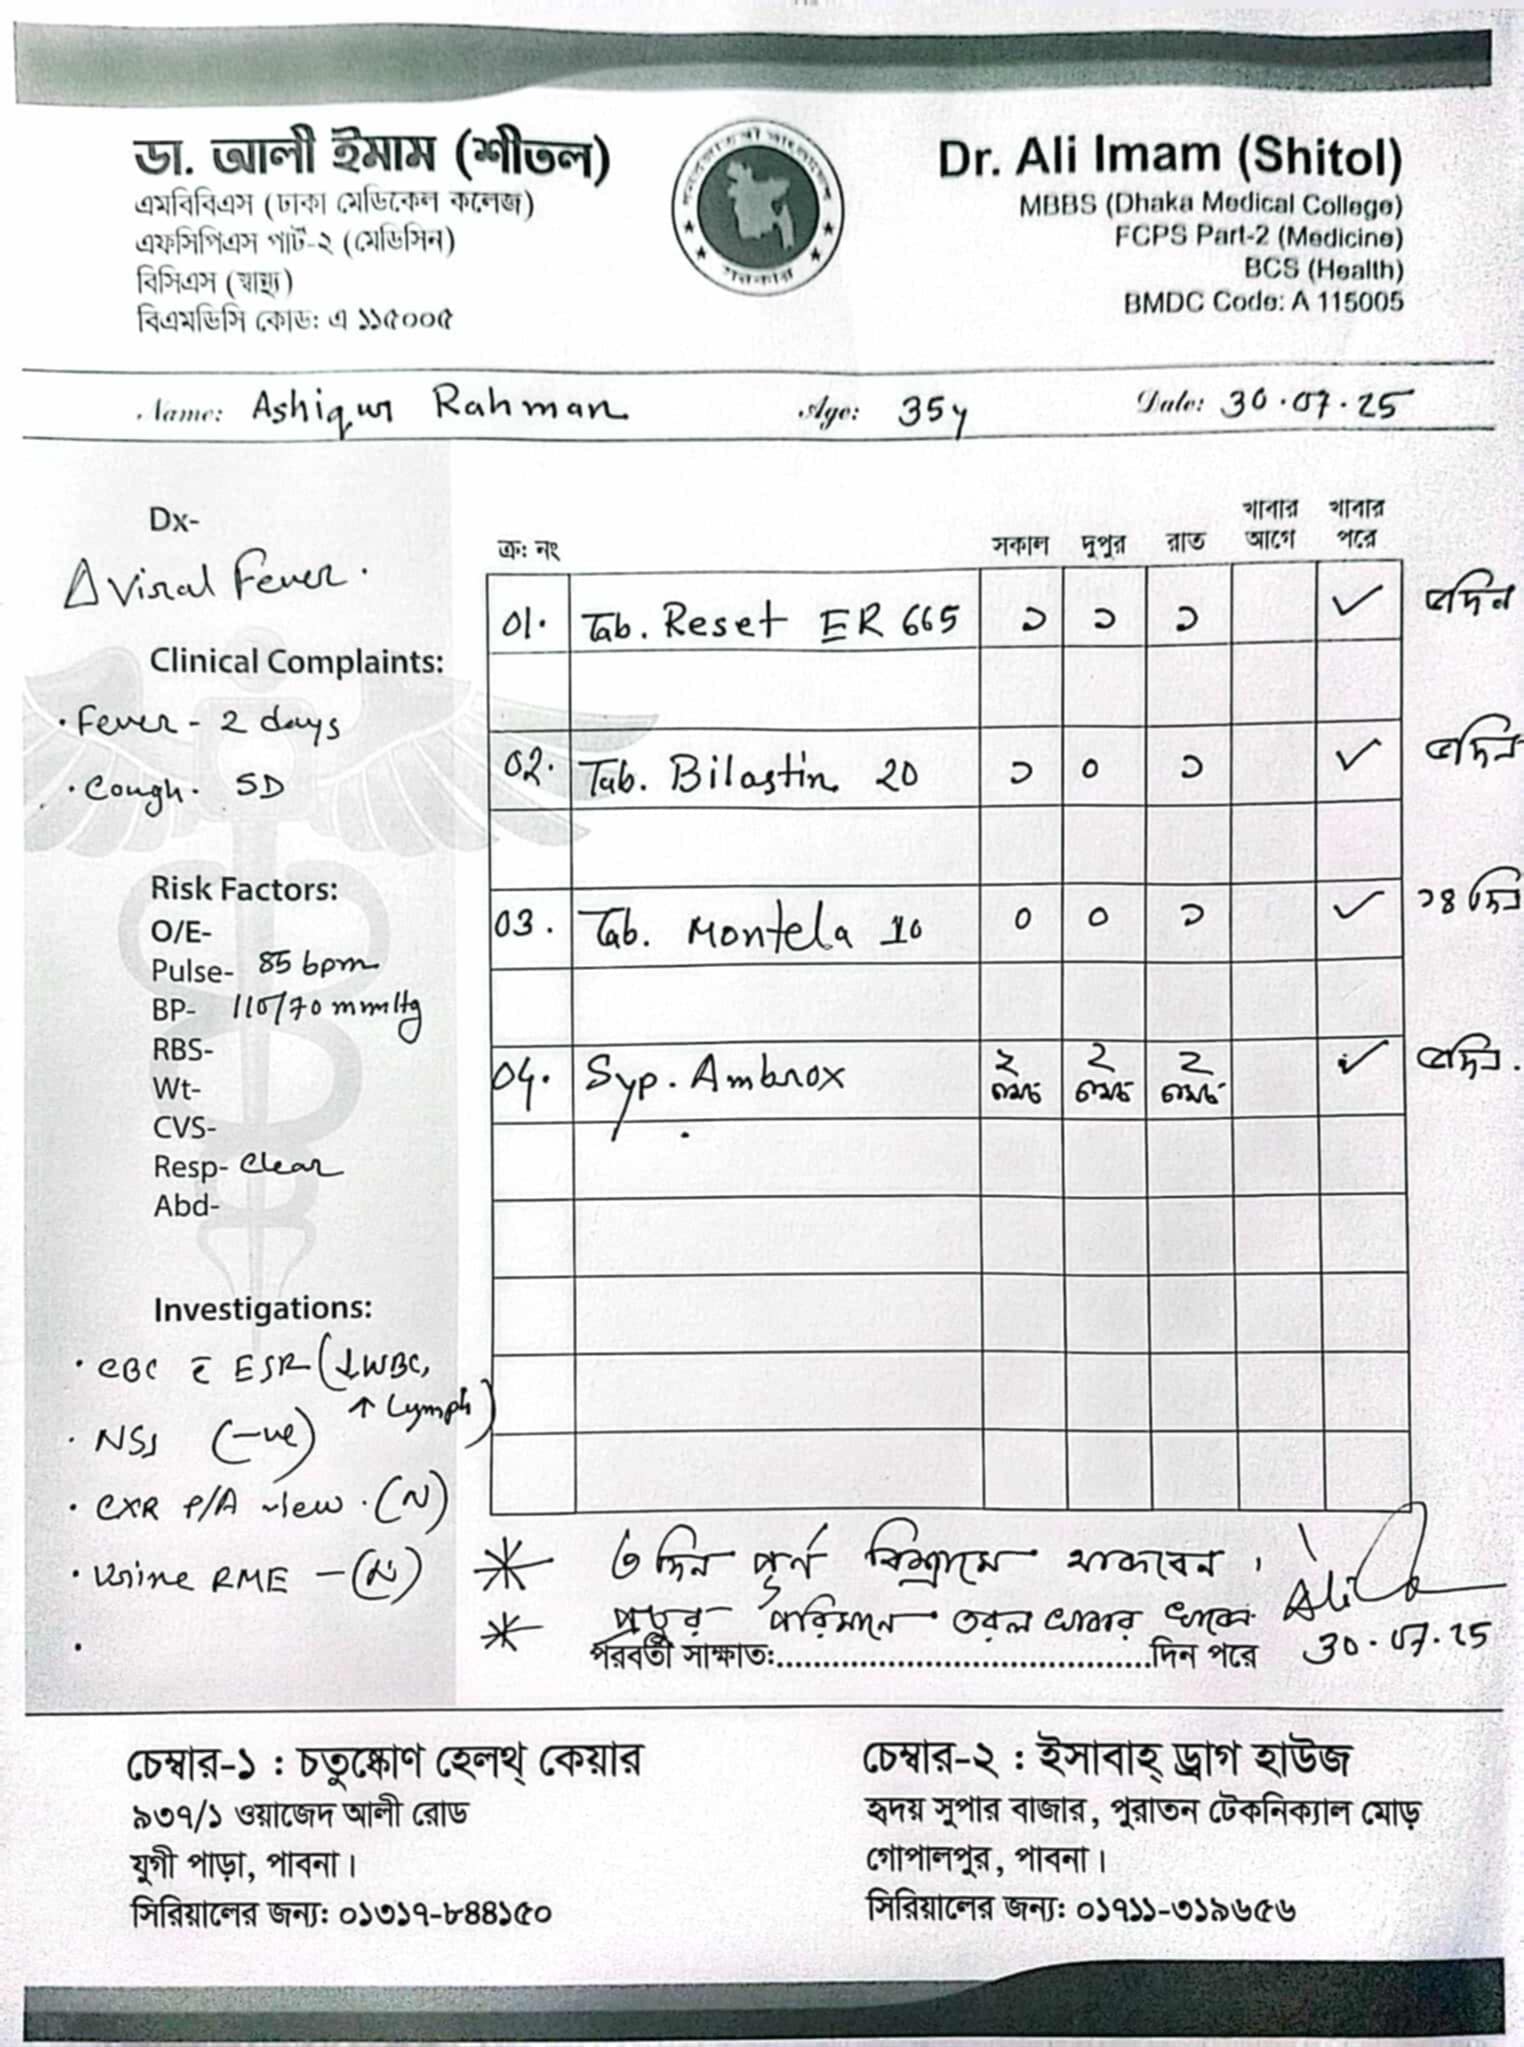 ডা. আলী ইমাম (শীতল)
এমবিবিএস (ঢাকা মেডিকেল কলেজ)
এফসিপিএস পার্ট-২ (মেডিসিন)
বিসিএস (স্বাস্থ্য)
বিএমডিসি কোড: এ ১১৫০০৫
Dr. Ali Imam (Shitol)
MBBS (Dhaka Medical College)
FCPS Part-2 (Medicine)
BCS (Health)
BMDC Code: A 115005
Name: Ashiqur Rahman Age: 35y Date: 30.07.25
Dx-
Δ Viral Fever.
Clinical Complaints:
· Fever - 2 days
· Cough. 5D
Risk Factors:
O/E-
Pulse- 85 bpm
BP- 110/70 mmHg
RBS-
Wt-
CVS-
Resp- Clear
Abd-
Investigations:
· CBC c̄ ESR (↓WBC,
↑ Lymph)
· NS1 (-ve)
· CXR P/A view. (N)
· Urine RME - (N)
ক্র: নং সকাল দুপুর রাত খাবার আগে খাবার পরে
01. Tab. Reset ER 665 ১ ১ ১ ✓ ৫দিন
02. Tab. Bilastin 20 ১ ০ ১ ✓ ৫দিন
03. Tab. Montela 10 ০ ০ ১ ✓ ১৪ দিন
04. Syp. Ambrox ২ চামচ ২ চামচ ২ চামচ ✓ ৫দিন.
* ৩ দিন পূর্ন বিশ্রামে থাকবেন।
* প্রচুর পরিমানে তরল খাবার খাবেন.
Ali
30.07.25
পরবর্তী সাক্ষাত:......................................দিন পরে
চেম্বার-১ : চতুষ্কোণ হেলথ্ কেয়ার
৯৩৭/১ ওয়াজেদ আলী রোড
যুগী পাড়া, পাবনা।
সিরিয়ালের জন্য: ০১৩১৭-৮৪৪১৫০
চেম্বার-২ : ইসাবাহ্ ড্রাগ হাউজ
হৃদয় সুপার বাজার, পুরাতন টেকনিক্যাল মোড়
গোপালপুর, পাবনা।
সিরিয়ালের জন্য: ০১৭১১-৩১৯৬৫৬